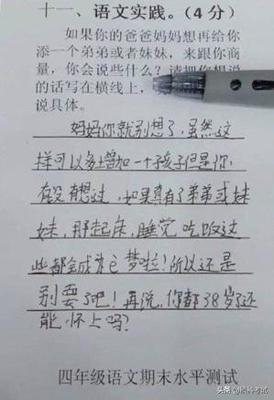 十一、语文实践。(4分)
如果你的爸爸妈妈想再给你
添一个弟弟或者妹妹，来跟你商
量，你会说些什么？请把你想说
的话写在横线上，
说具体。
妈妈你就别想了，虽然这
样可以多增加一个孩子但是你
有没有想过，如果真有了弟弟或妹
妹，那起床，睡觉吃饭这
些都会成为它梦啦！所以还是
别要了吧！再说，你都38岁了还
能怀上吗？
四年级语文期末水平测试